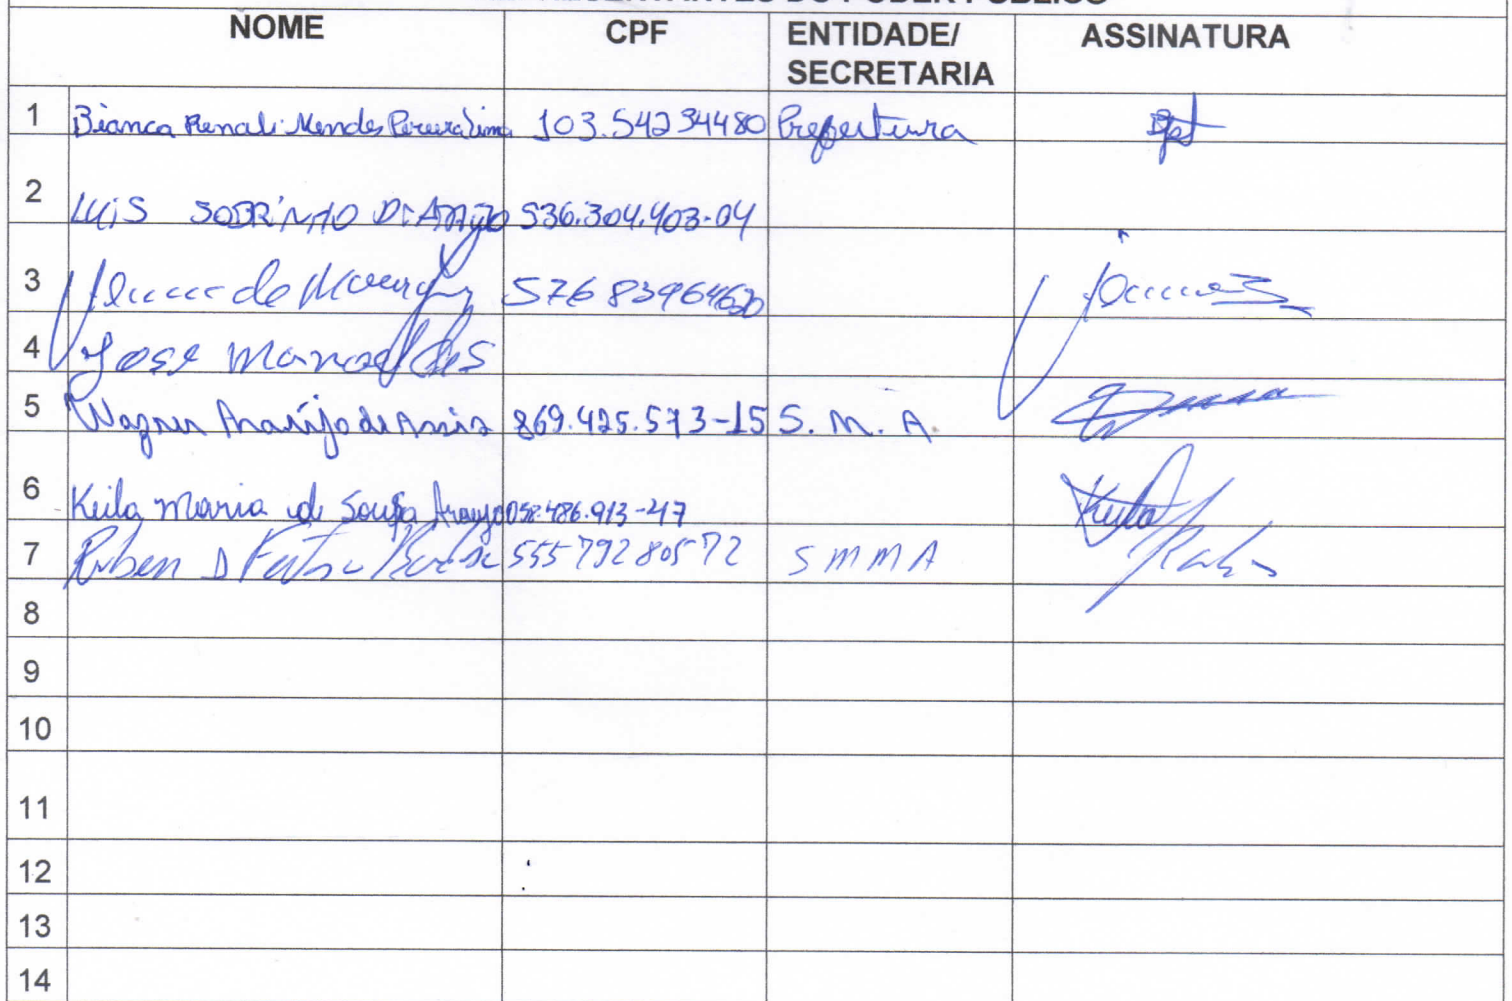 REPRESENTANTES DO PODER PÚBLICO
NOME CPF ENTIDADE/ SECRETARIA ASSINATURA
1 Bianca Renali Mendes Pereira Lima 103.54234480 Prefeitura
2 LUIS SOBRINHO DE ARAUJO 536.304.403-04
3 de
4 Jose Manoel
5 Wagner Araújo de Assis 869.425.573-15 S. M. A.
6 Keila Maria de Sousa Araujo 058.486.913-47 Keila
7 Ruben D 555 792 805 72 SMMA
8
9
10
11
12
13
14